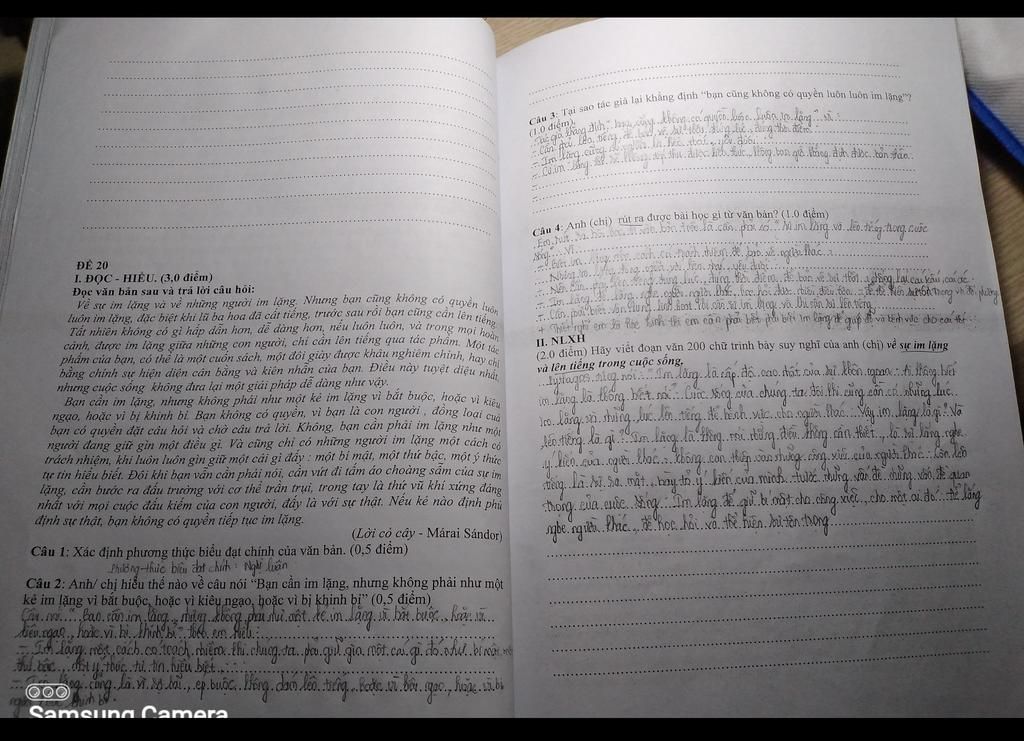 ĐỀ 20
I. ĐỌC - HIỂU. (3,0 điểm)
Đọc văn bản sau và trả lời câu hỏi:
Về sự im lặng và về những người im lặng. Nhưng bạn cũng không có quyền luôn
luôn im lặng, đặc biệt khi lũ ba hoa đã cất tiếng, trước sau rồi bạn cũng cần lên tiếng.
Tất nhiên không có gì hấp dẫn hơn, dễ dàng hơn, nếu luôn luôn, và trong mọi hoàn
cảnh, được im lặng giữa những con người, chỉ cần lên tiếng qua tác phẩm. Một tác
phẩm của bạn, có thể là một cuốn sách, một đôi giày được khâu nghiêm chỉnh, hay chỉ
bằng chính sự hiện diện cân bằng và kiên nhẫn của bạn. Điều này tuyệt diệu nhất,
nhưng cuộc sống không đưa lại một giải pháp dễ dàng như vậy.
Bạn cần im lặng, nhưng không phải như một kẻ im lặng vì bắt buộc, hoặc vì kiêu
ngạo, hoặc vì bị khinh bỉ. Bạn không có quyền, vì bạn là con người , đồng loại của
bạn có quyền đặt câu hỏi và chờ câu trả lời. Không, bạn cần phải im lặng như một
người đang giữ gìn một điều gì. Và cũng chỉ có những người im lặng một cách có
trách nhiệm, khi luôn luôn gìn giữ một cái gì đấy : một bí mật, một thứ bậc, một ý thức
tự tin hiểu biết. Đôi khi bạn vẫn cần phải nói, cần vứt đi tấm áo choàng sẫm của sự im
lặng, cần bước ra đấu trường với cơ thể trần trụi, trong tay là thứ vũ khí xứng đáng
nhất với mọi cuộc đấu kiếm của con người, đấy là với sự thật. Nếu kẻ nào định phủ
định sự thật, bạn không có quyền tiếp tục im lặng.
(Lời cỏ cây - Márai Sándor)
Câu 1: Xác định phương thức biểu đạt chính của văn bản. (0,5 điểm)
Phương thức biểu đạt chính : Nghị luận
Câu 2: Anh/ chị hiểu thế nào về câu nói “Bạn cần im lặng, nhưng không phải như một
kẻ im lặng vì bắt buộc, hoặc vì kiêu ngạo, hoặc vì bị khinh bỉ” (0,5 điểm)
Câu nói " Bạn cần im lặng, nhưng không phải như một kẻ im lặng vì bắt buộc, hoặc vì
kiêu ngạo, hoặc vì bị khinh bỉ" theo em hiểu :
- Im lặng một cách có trách nhiệm khi chúng ta phải giữ gìn một cái gì đó như bí mật, một
thứ bậc, một ý thức tự tin hiểu biết
- Im lặng cũng là vì sợ hãi, ép buộc không dám lên tiếng hoặc vì kiêu ngạo, hoặc vì bị
khinh bỉ.
Samsung Camera
Câu 3: Tại sao tác giả lại khẳng định “bạn cũng không có quyền luôn luôn im lặng”?
(1.0 điểm)
Tác giả khẳng định " bạn cũng không có quyền luôn luôn im lặng" vì :
- Cần phải lên tiếng để bảo vệ sự thật đúng lúc, đúng thời điểm
- Im lặng cũng là người bị thất bại, yếu đuối
- Cứ im lặng thì sẽ không tiếp thu được kiến thức, không bao giờ khẳng định được bản thân
Câu 4: Anh (chị) rút ra được bài học gì từ văn bản? (1.0 điểm)
Em rút ra bài học từ văn bản trên là cần phải có sự im lặng và lên tiếng trong cuộc
sống. Vì :
- Biết im lặng một cách có trách nhiệm để bảo vệ người khác
II. NLXH
(2.0 điểm) Hãy viết đoạn văn 200 chữ trình bày suy nghĩ của anh (chị) về sự im lặng
và lên tiếng trong cuộc sống.
Pytago từng nói : " Im lặng là cấp độ cao nhất của sự khôn ngoan. Ai không biết
im lặng là không biết nói". Cuộc sống của chúng ta đôi khi cũng cần có những lúc
im lặng và những lúc lên tiếng để bênh vực cho người khác. Vậy im lặng là gì ? Và
lên tiếng là gì ? Im lặng là không nói những điều không cần thiết, là sự lắng nghe
ý kiến của người khác, không can thiệp vào những công việc của người khác. Còn lên
tiếng là sự ra mặt, bày tỏ ý kiến của mình trước những vấn đề, những vấn đề quan
trọng của cuộc sống. Im lặng để giữ bí mật cho công việc, cho một ai đó, để lắng
nghe người khác, để học hỏi và thể hiện sự tôn trọng